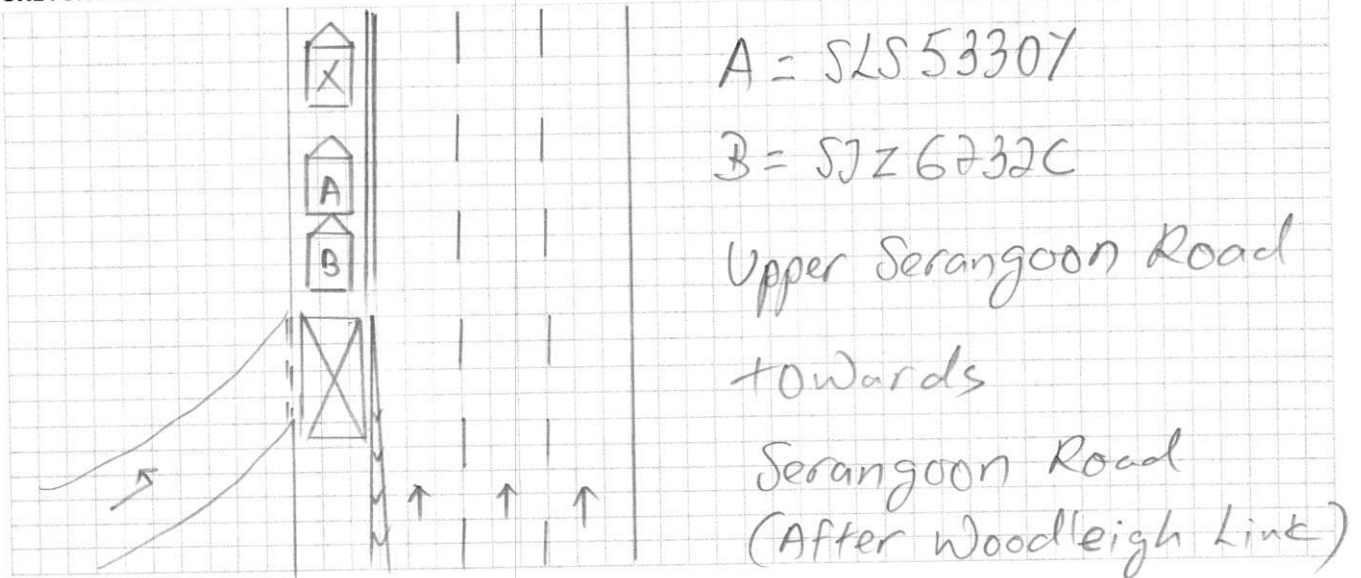 X
A
B
A = SLS5330Y
B = SJZ6232C
Upper Serangoon Road
towards
Serangoon Road
(After Woodleigh Link)